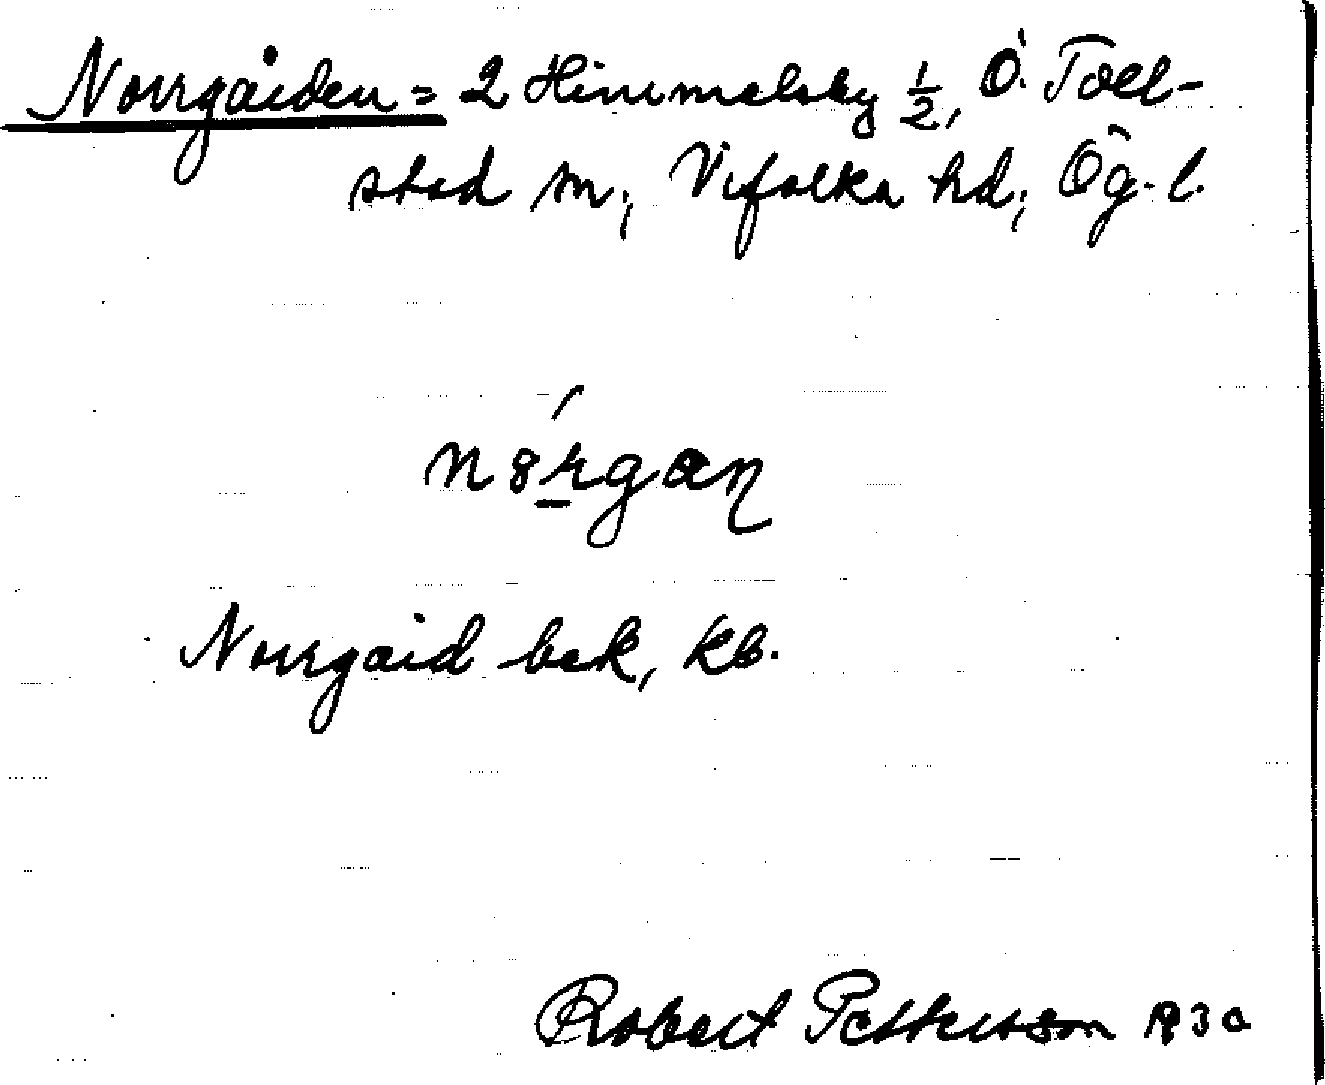 Norrgården = 2 Himmelsby ½, Ö. Toll-
stad sn, Vifolka hd, Ög. l.
Norrgård bek, kb.
Robert Pettersson 1930